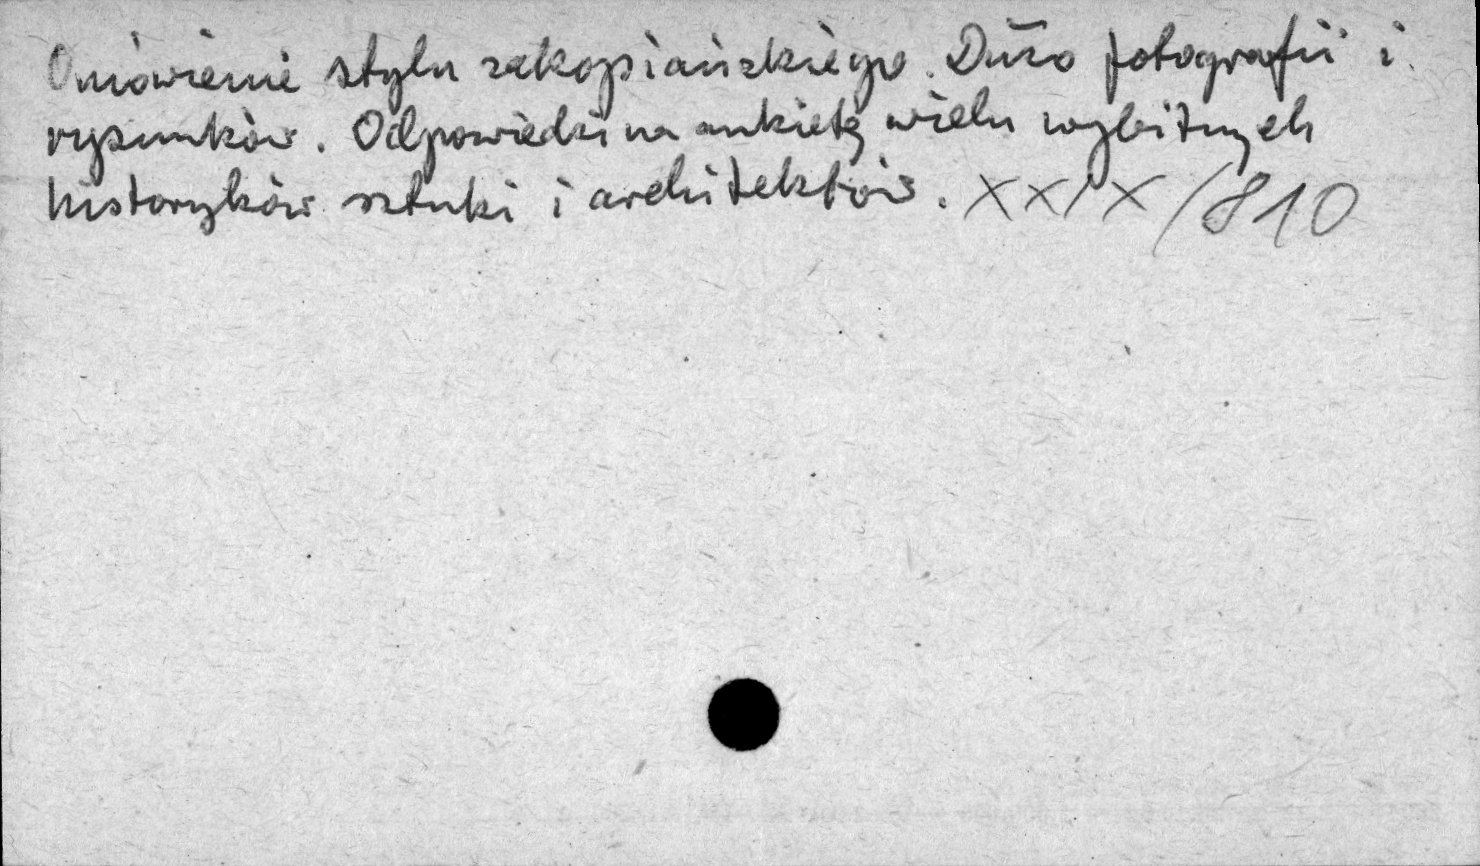 Omówienie stylu zakopiańskiego. Dużo fotografii i
rysunków. Odpowiedzi na ankietę wielu wybitnych
historyków sztuki i architektów. XXIX/810